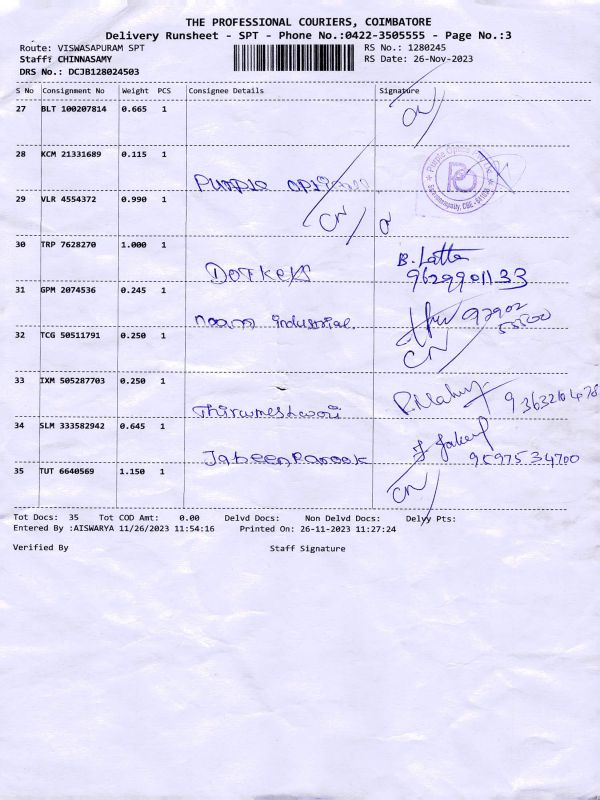 THE PROFESSIONAL COURIERS, COIMBATORE
Delivery Runsheet - SPT - Phone No.:0422-3505555 - Page No.:3
Route: VISWASAPURAM SPT RS No.: 1280245
Staff: CHINNASAMY RS Date: 26-Nov-2023
DRS No.: DCJB128024503
S No Consignment No Weight PCS Consignee Details Signature
27 BLT 100207814 0.665 1 CN
28 KCM 21331689 0.115 1
Purple Optical
29 VLR 4554372 0.990 1 CN
30 TRP 7628270 1.000 1 B. Latha
DotKeys 9629901133
31 GPM 2074536 0.245 1
industrial 97902
55500
32 TCG 50511791 0.250 1 CN
33 IXM 505287703 0.250 1
Thirumeshwari
34 SLM 333582942 0.645 1
JabeenParook 95975 34700
35 TUT 6640569 1.150 1 CN
Tot Docs: 35 Tot COD Amt: 0.00 Delvd Docs: Non Delvd Docs: Delyy Pts:
Entered By :AISWARYA 11/26/2023 11:54:16 Printed On: 26-11-2023 11:27:24
Verified By Staff Signature